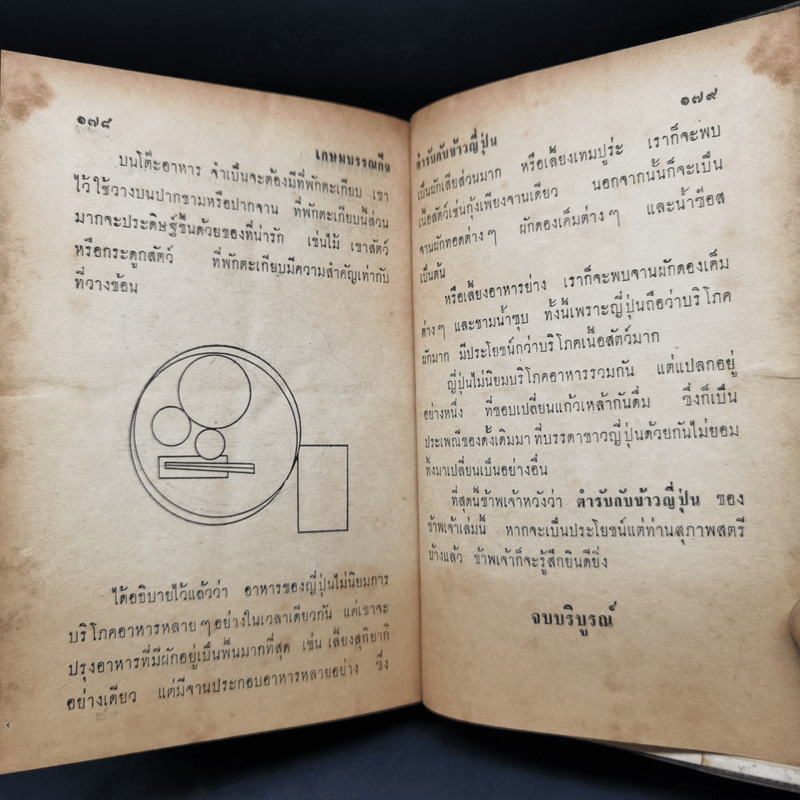 ๑๗๘
เกษมบรรณกิจ
บนโต๊ะอาหาร จำเป็นจะต้องมีที่พักตะเกียบ เขา
ไว้ใช้วางบนปากชามหรือปากจาน ที่พักตะเกียบนี้ส่วน
มากจะประดิษฐ์ขึ้นด้วยของที่น่ารัก เช่นไม้ เขาสัตว์
หรือกระดูกสัตว์ ที่พักตะเกียบมีความสำคัญเท่ากับ
ที่วางช้อน
ได้อธิบายไว้แล้วว่า อาหารของญี่ปุ่นไม่นิยมการ
บริโภคอาหารหลายๆอย่างในเวลาเดียวกัน แต่เขาจะ
ปรุงอาหารที่มีผักอยู่เป็นพื้นมากที่สุด เช่น เลี้ยงสุกิยากิ
อย่างเดียว แต่มีจานประกอบอาหารหลายอย่าง ซึ่ง
๑๗๙
ตำรับกับข้าวญี่ปุ่น
เป็นผักเสียส่วนมาก หรือเลี้ยงเทมปูร่ะ เราก็จะพบ
เนื้อสัตว์เช่นกุ้งเพียงจานเดียว นอกจากนั้นก็จะเป็น
จานผักทอดต่างๆ ผักดองเค็มต่างๆ และน้ำซ๊อส
เป็นต้น
หรือเลี้ยงอาหารย่าง เราก็จะพบจานผักดองเค็ม
ต่างๆ และชามน้ำซุบ ทั้งนี้เพราะญี่ปุ่นถือว่าบริโภค
ผักมาก มีประโยชน์กว่าบริโภคเนื้อสัตว์มาก
ญี่ปุ่นไม่นิยมบริโภคอาหารรวมกัน แต่แปลกอยู่
อย่างหนึ่ง ที่ชอบเปลี่ยนแก้วเหล้ากันดื่ม ซึ่งก็เป็น
ประเพณีของดั้งเดิมมา ที่บรรดาชาวญี่ปุ่นด้วยกันไม่ยอม
ทิ้งมาเปลี่ยนเป็นอย่างอื่น
ที่สุดนี้ข้าพเจ้าหวังว่า ตำรับกับข้าวญี่ปุ่น ของ
ข้าพเจ้าเล่มนี้ หากจะเป็นประโยชน์แต่ท่านสุภาพสตรี
บ้างแล้ว ข้าพเจ้าก็จะรู้สึกยินดียิ่ง
จบบริบูรณ์